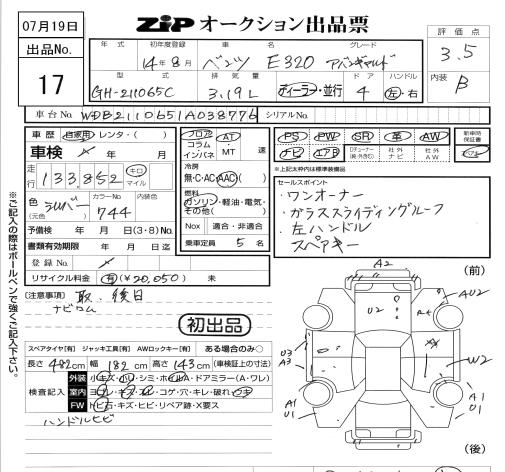 07月19日
ZIP オークション出品票
出品No.
17
評価点
3.5
内装
B
年式 初年度登録 車名 グレード
14年8月 ベンツ E320 アバンギャルド
型式 排気量 ドア ハンドル
GH-211065C 3.19L ディーラー・並行 4 左・右
車台No. WDB2110651A038776 シリアルNo.
車歴 自家用・レンタ・( )
車検 年 月
走行 133,852 キロ マイル
色 シルバー (元色) カラーNo. 744 内装色
予備検 年 月 日(3・8)No.
書類有効期限 年 月 日迄
登録No.
リサイクル料金 有(¥20,050) 未
フロア コラム インパネ AT・MT 速
冷房
無・C・AC・AAC( )
燃料
ガソリン・軽油・電気・その他( )
Nox 適合・非適合
乗車定員 5名
PS PW SR 革 AW
ナビ エアB TVチューナー(純・外含む) 社外ナビ 社外AW
新車時保証書
*上記太枠内は標準装備品
セールスポイント
・ワンオーナー
・ガラススライディングルーフ
・左ハンドル
スペアキー
[注意事項] 取、後日
ナビロム
初出品
スペアタイヤ[有] ジャッキ工具[有] AWロックキー[有] ある場合のみ○
長さ 482cm 幅 182cm 高さ 143cm (車検証上の寸法)
検査記入
外装 小キズ・小凹・シミ・ホイルA・ドアミラー(A・ワレ)
室内 ヨゴレ・キズ・スレ・コゲ・穴・キレ・破れ・ウキ
FW トビ石・キズ・ヒビ・リペア跡・X要ス
ハンドルヒビ
※ご記入の際はボールペンで強くご記入下さい。
(前)
A2
U2
AU2
U3
A3
W2
A1
U1
A1
U1
(後)